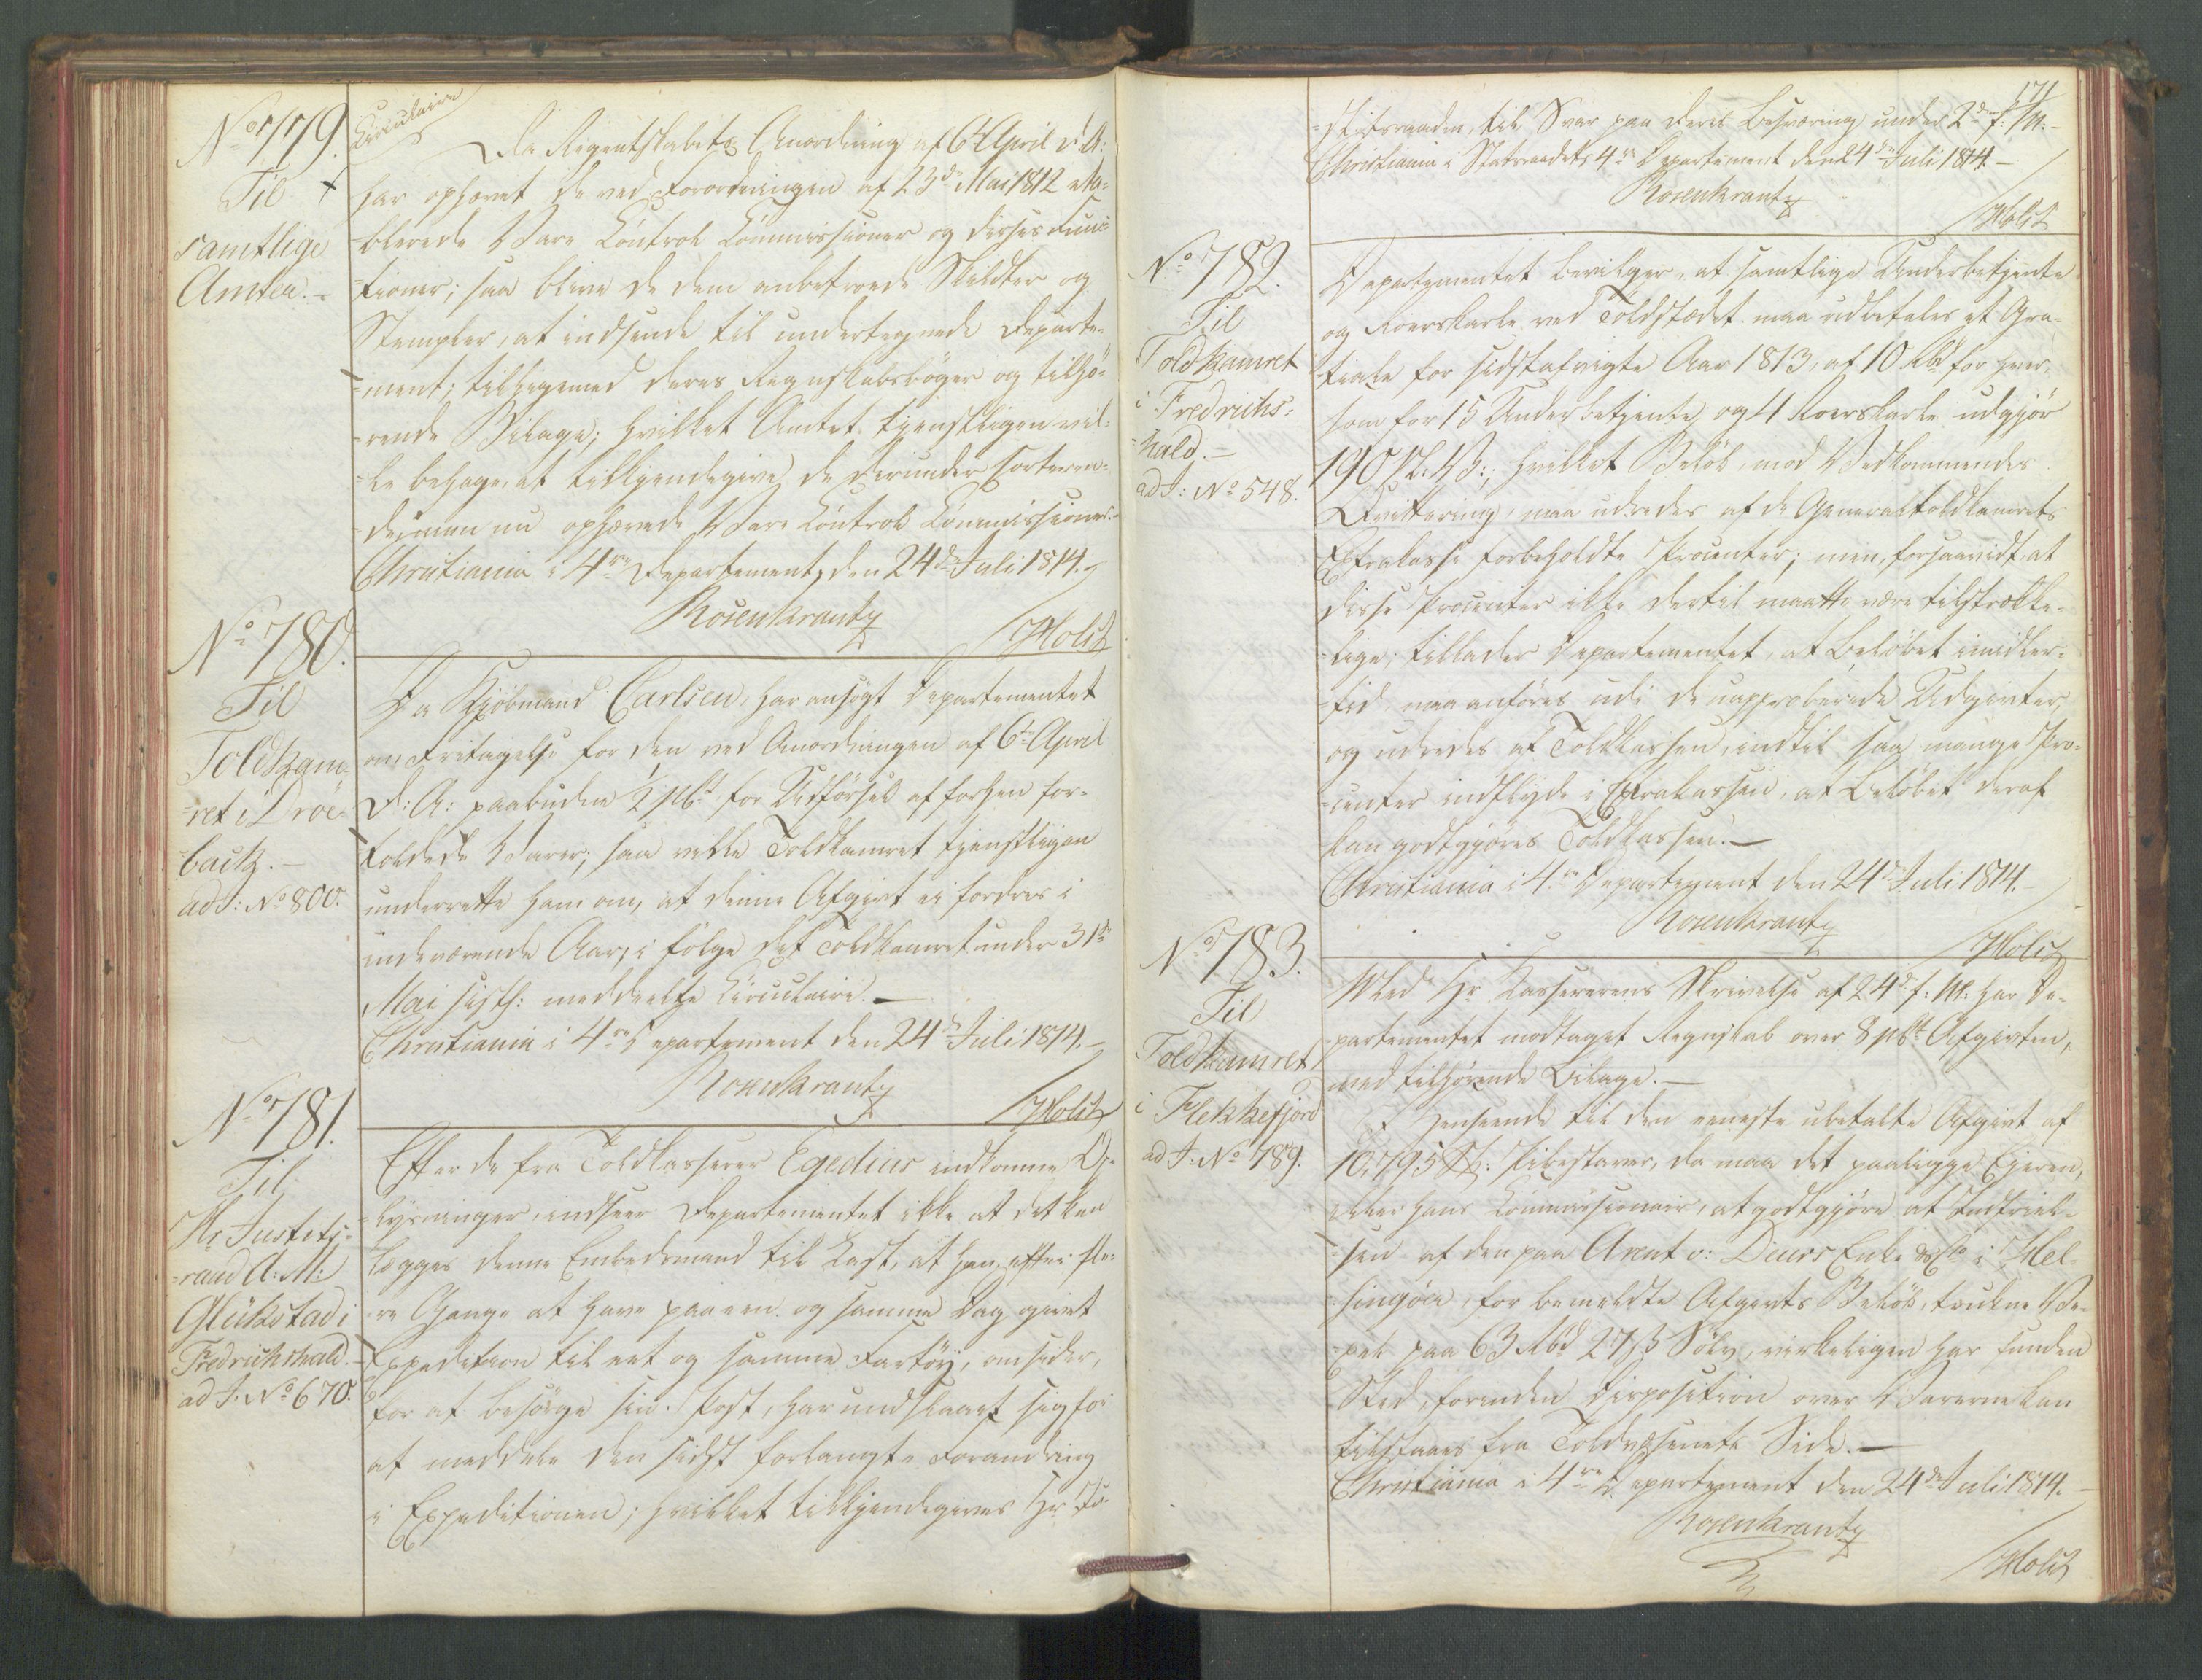 No 779.
Til
samtlige
Amter. -
Circulaire
Da Regentskabets Anordning af 6te April d: A:
har ophævet de ved Forordningen af 23de Mai 1812 eta-
blerede Vare Controle Commissioner og disses Func-
tioner; saa blive de dem anbetroede Skildter og
Stempler, at indsende til undertegnede Departe-
ment; tilligemed deres Regnskabsbøger og tilhø-
rende Bilage; hvilket Amtet tjenstligen vil-
le behage at tilkjendegive de derunder sorteren-
de nu ophævede Vare Controle Commissioner.
Christiania i 4re Departement, den 24de Juli 1814. -
Rosenkrantz
/Holst
No 780.
Til
Toldkam-
ret i Drøe-
back. -
ad J: No 800.
Da Kjøbmand Carlsen, har ansøgt Departementet
om Fritagelse for den ved Anordningen af 6te April
d: A: paabudne ½ pCt for Udførsel af forhen for-
toldede Varer; saa ville Toldkamret tjenstligen
underrette ham om, at denne Afgivt ei fordres i
indeværende Aar, i følge det Toldkamret under 31te
Mai sidstl: meddeelte Circulaire. -
Christiania i 4re Departement den 24de Juli 1814. -
Rosenkrantz
/Holst
No 781.
Til
Hr Justits-
raad A: M:
Glükstad i
Fredrichshald. -
ad J. No 670.
Efter de fra Toldkasserer Egedius indkomne Op-
lysninger, indseer Departementet ikke at det kan
lægges denne Embedsmand til Last, at han, efter fle-
re Gange at have paa een og samme Dag givet
Expedition til eet og samme Fartøy, omsider,
for at besørge sin Post, har undslaaet sig for
at meddele den sidst forlangte Forandring
i Expeditionen; hvilket tilkjendegives Hr Ju-
171
stitsraaden, til Svar paa deres Besværing under 2den f: M: -
Christiania i Statsraadets 4re Departement den 24de Juli 1814. -
Rosenkrantz
/Holst
No 782.
Til
Toldkamret
i Fredrichs-
hald. -
ad J: No 548.
Departementet bevilger, at samtlige Underbetjente
og Roerskarle ved Toldstedet maa udbetales et Gra-
tiale for sidstafvigte Aar 1813, af 10 Rbd for hver,
som for 15 Underbetjente og 4 Roerskarle udgjør
190 R: B:, hvilket Beløb, mod Vedkommendes
Qvittering, maa udredes af de Generaltoldkamrets
Extrakasse forbeholdte Procenter; men, forsaavidt at
disse Procenter ikke dertil maatte være tilstrække-
lige, tillader Departementet, at Beløbet imidler-
tid maa anføres udi de uapproberede Udgivter,
og udredes af Toldkassen, indtil saa mange Pro-
center indflyde i Extrakassen, at Beløbet deraf
kan godtgjøres Toldkassen. -
Christiania i 4re Departement den 24de Juli 1814. -
Rosenkrantz
/Holst
No 783.
Til
Toldkamret
i Flekkefjord
ad J. No 789.
Med Hr Kassererens Skrivelse af 24de f: M: har De-
partementet modtaget Regnskab over 8 pCt Afgivten,
med tilhørende Bilage. -
I Henseende til den eneste ubetalte Afgivt af
10,795 St: Pibestaver, da maa det paaligge Ejeren,
eller hans Commissionair, at godtgjøre at Indfriel-
sen af den paa Arent v: Deurs Enke & Co i Hel-
singøer, for bemeldte Afgivts Beløb, trukne Ve-
xel paa 63 Rbd 27 ß Sølv, virkeligen har funden
Sted, forinden Disposition over Varerne kan
tilstaaes fra Toldvæsenets Side. -
Christiania i 4re Departement den 24de Juli 1814. -
Rosenkrantz
/Holst